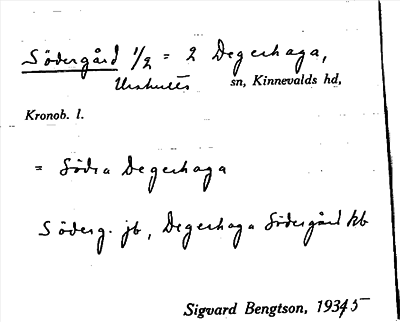 Södergård 1/2 = 2 Degerhaga,
Urshults sn, Kinnevalds hd,
Kronob. l.
= Södra Degerhaga
Söderg. jb, Degerhaga Södergård kb
Sigvard Bengtson, 19345